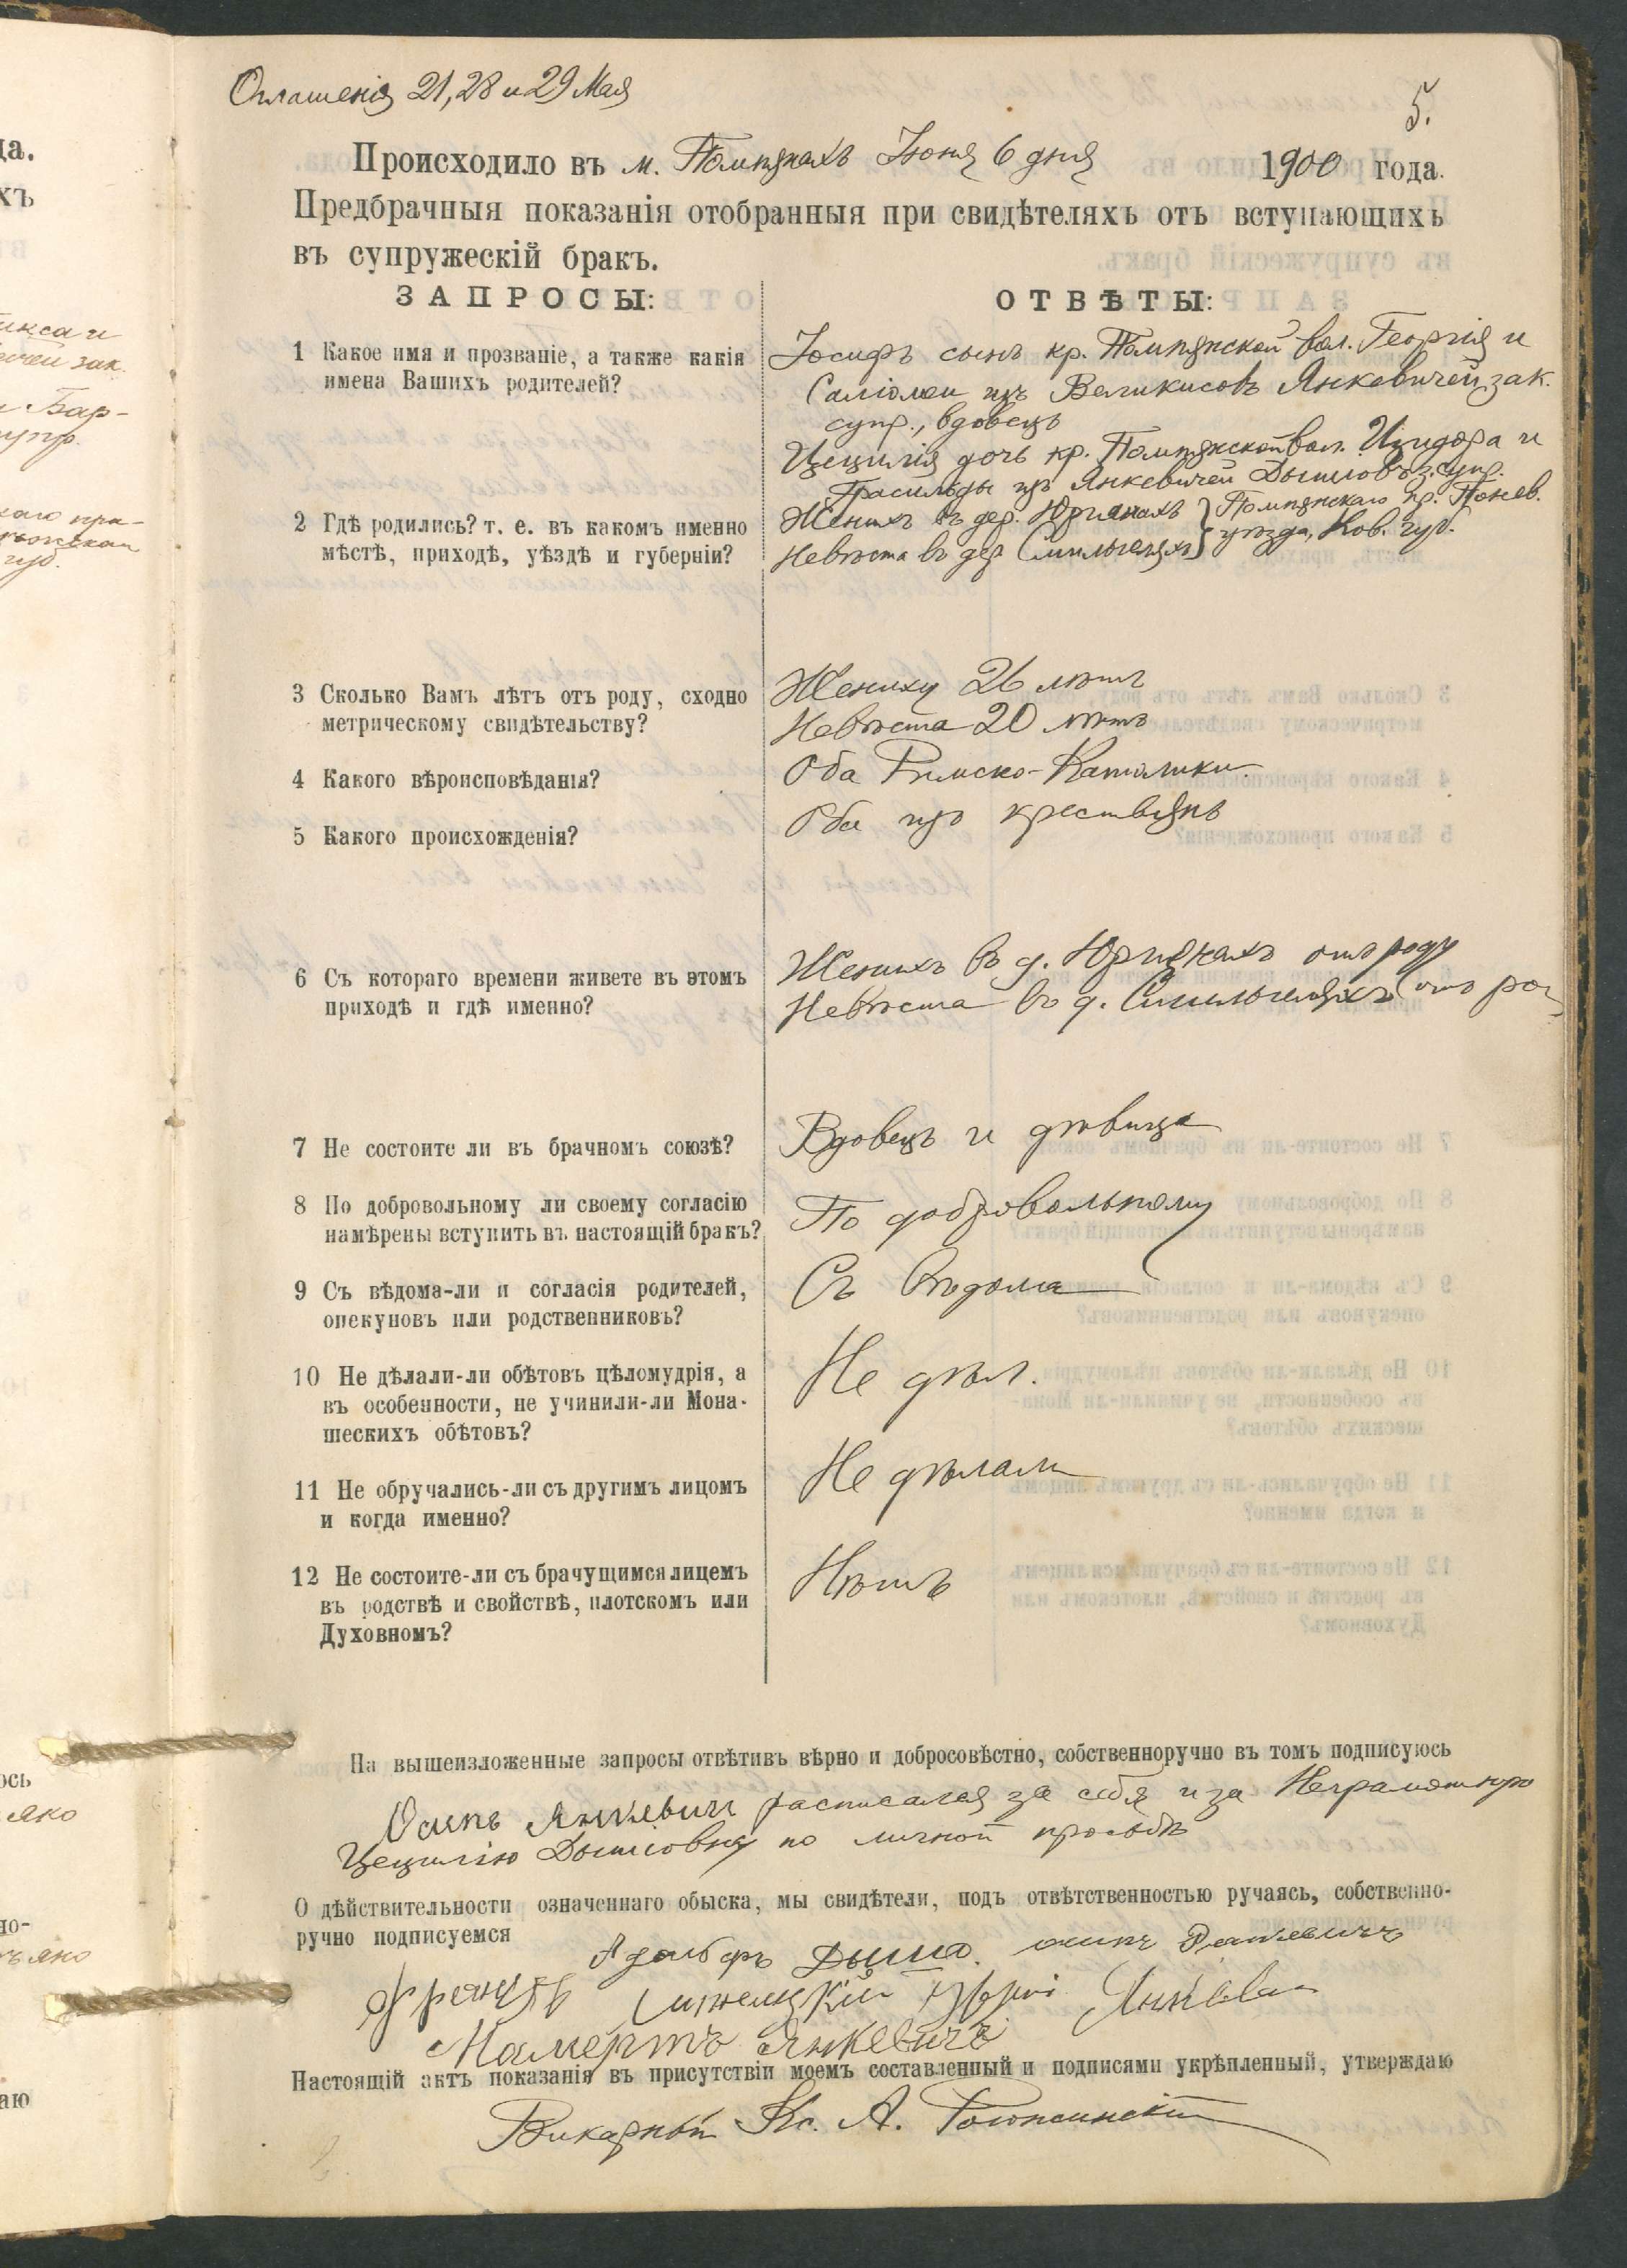 Оглашенія 21, 28 и 29 Мая
5.
Происходило въ м. Помпянахъ Іюня 6 дня 1900 года.
Предбрачныя показанія отобранныя при свидѣтеляхъ отъ вступающихъ
въ супружескій бракъ.
ЗАПРОСЫ:
ОТВѢТЫ:
1 Какое имя и прозваніе, а также какія
имена Вашихъ родителей?
Іосифъ сынъ кр. Помпянской вол. Георгія и
Саломеи изъ Великисовъ Янкевичей зак.
супр., вдовецъ
Цецилія дочь кр. Помпянской вол. Изидора и
изъ Янкевичей з. супр.
2 Гдѣ родились? т. е. въ какомъ именно
мѣстѣ, приходѣ, уѣздѣ и губерніи?
Женихъ въ дер. Юрянахъ } Помпянскаго пр. Понев.
Невѣста въ дер } уѣзда, Ков. губ.
3 Сколько Вамъ лѣтъ отъ роду, сходно
метрическому свидѣтельству?
Жениху 26 лѣтъ
Невѣста 20 лѣтъ
4 Какого вѣроисповѣданія?
Оба Римско-Католики
5 Какого происхожденія?
Оба изъ крестьянъ
6 Съ котораго времени живете въ этомъ
приходѣ и гдѣ именно?
Женихъ въ д. отъ роду
Невѣста въ д. отъ ро-
7 Не состоите ли въ брачномъ союзѣ?
Вдовецъ и дѣвица
8 По добровольному ли своему согласію
намѣрены вступить въ настоящій бракъ?
По добровольному
9 Съ вѣдома-ли и согласія родителей,
опекуновъ или родственниковъ?
Съ вѣдома
10 Не дѣлали-ли обѣтовъ цѣломудрія, а
въ особенности, не учинили-ли Мона-
шескихъ обѣтовъ?
Не дѣл.
11 Не обручались-ли съ другимъ лицомъ
и когда именно?
Не дѣлали
12 Не состоите-ли съ брачущимся лицемъ
въ родствѣ и свойствѣ, плотскомъ или
Духовномъ?
Нѣтъ
На вышеизложенные запросы отвѣтивъ вѣрно и добросовѣстно, собственноручно въ томъ подписуюсь
Осипъ Янкевич расписался за себя и за Неграмотную
Цецилію по личной просьбѣ
О дѣйствительности означеннаго обыска, мы свидѣтели, подъ отвѣтственностью ручаясь, собственно-
ручно подписуемся
Адольфъ Дышо. осипъ
Францъ
Мамертъ Янкевичъ
Настоящій актъ показанія въ присутствіи моемъ составленный и подписями укрѣпленный, утверждаю
Викарный Кс. А.